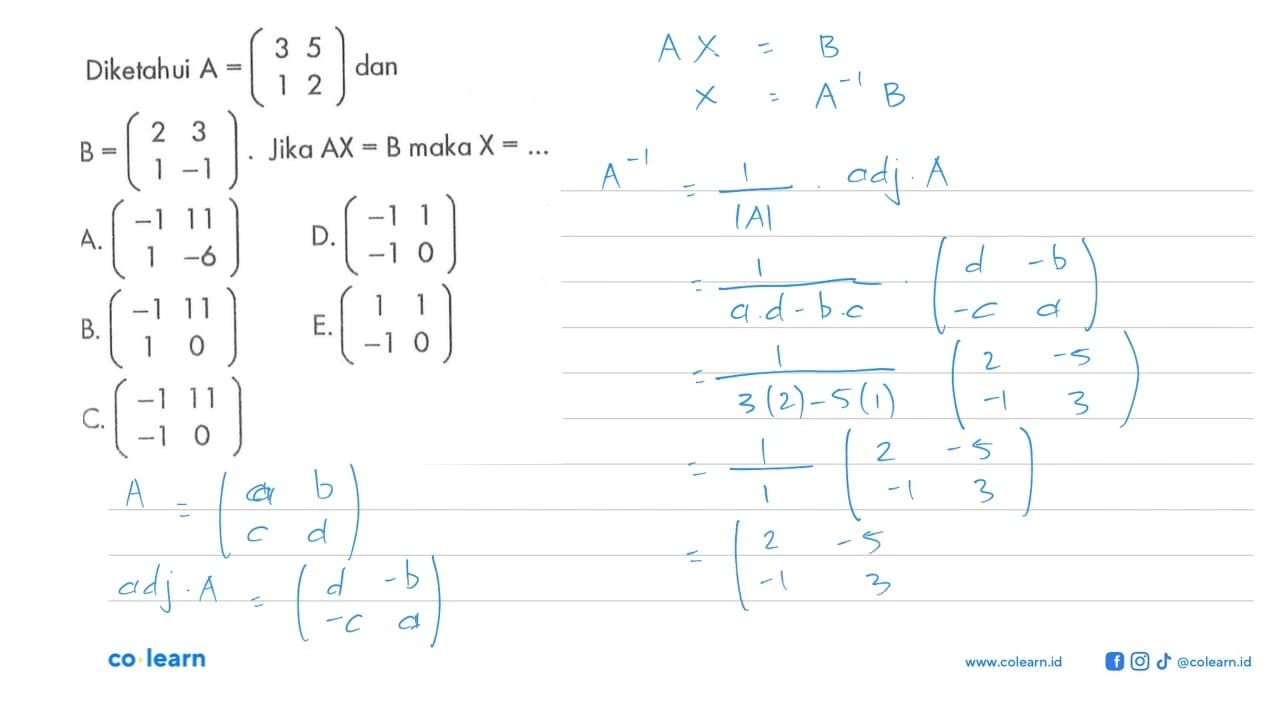 Diketahui A = (3 5
1 2) dan
B = (2 3
1 −1). Jika AX = B maka X = ...
A. (−1 11
1 −6)
B. (−1 11
1 0)
C. (−1 11
−1 0)
D. (−1 1
−1 0)
E. (1 1
−1 0)
A = (a b
c d)
adj. A = (d -b
-c a)
A X = B
X = A⁻¹ B
A⁻¹ = 1/|A| . adj. A
= 1/(a.d - b.c) . (d -b
-c a)
= 1/(3(2) - 5(1)) (2 -5
-1 3)
= 1/1 (2 -5
-1 3)
= (2 -5
-1 3
co learn
www.colearn.id
@colearn.id